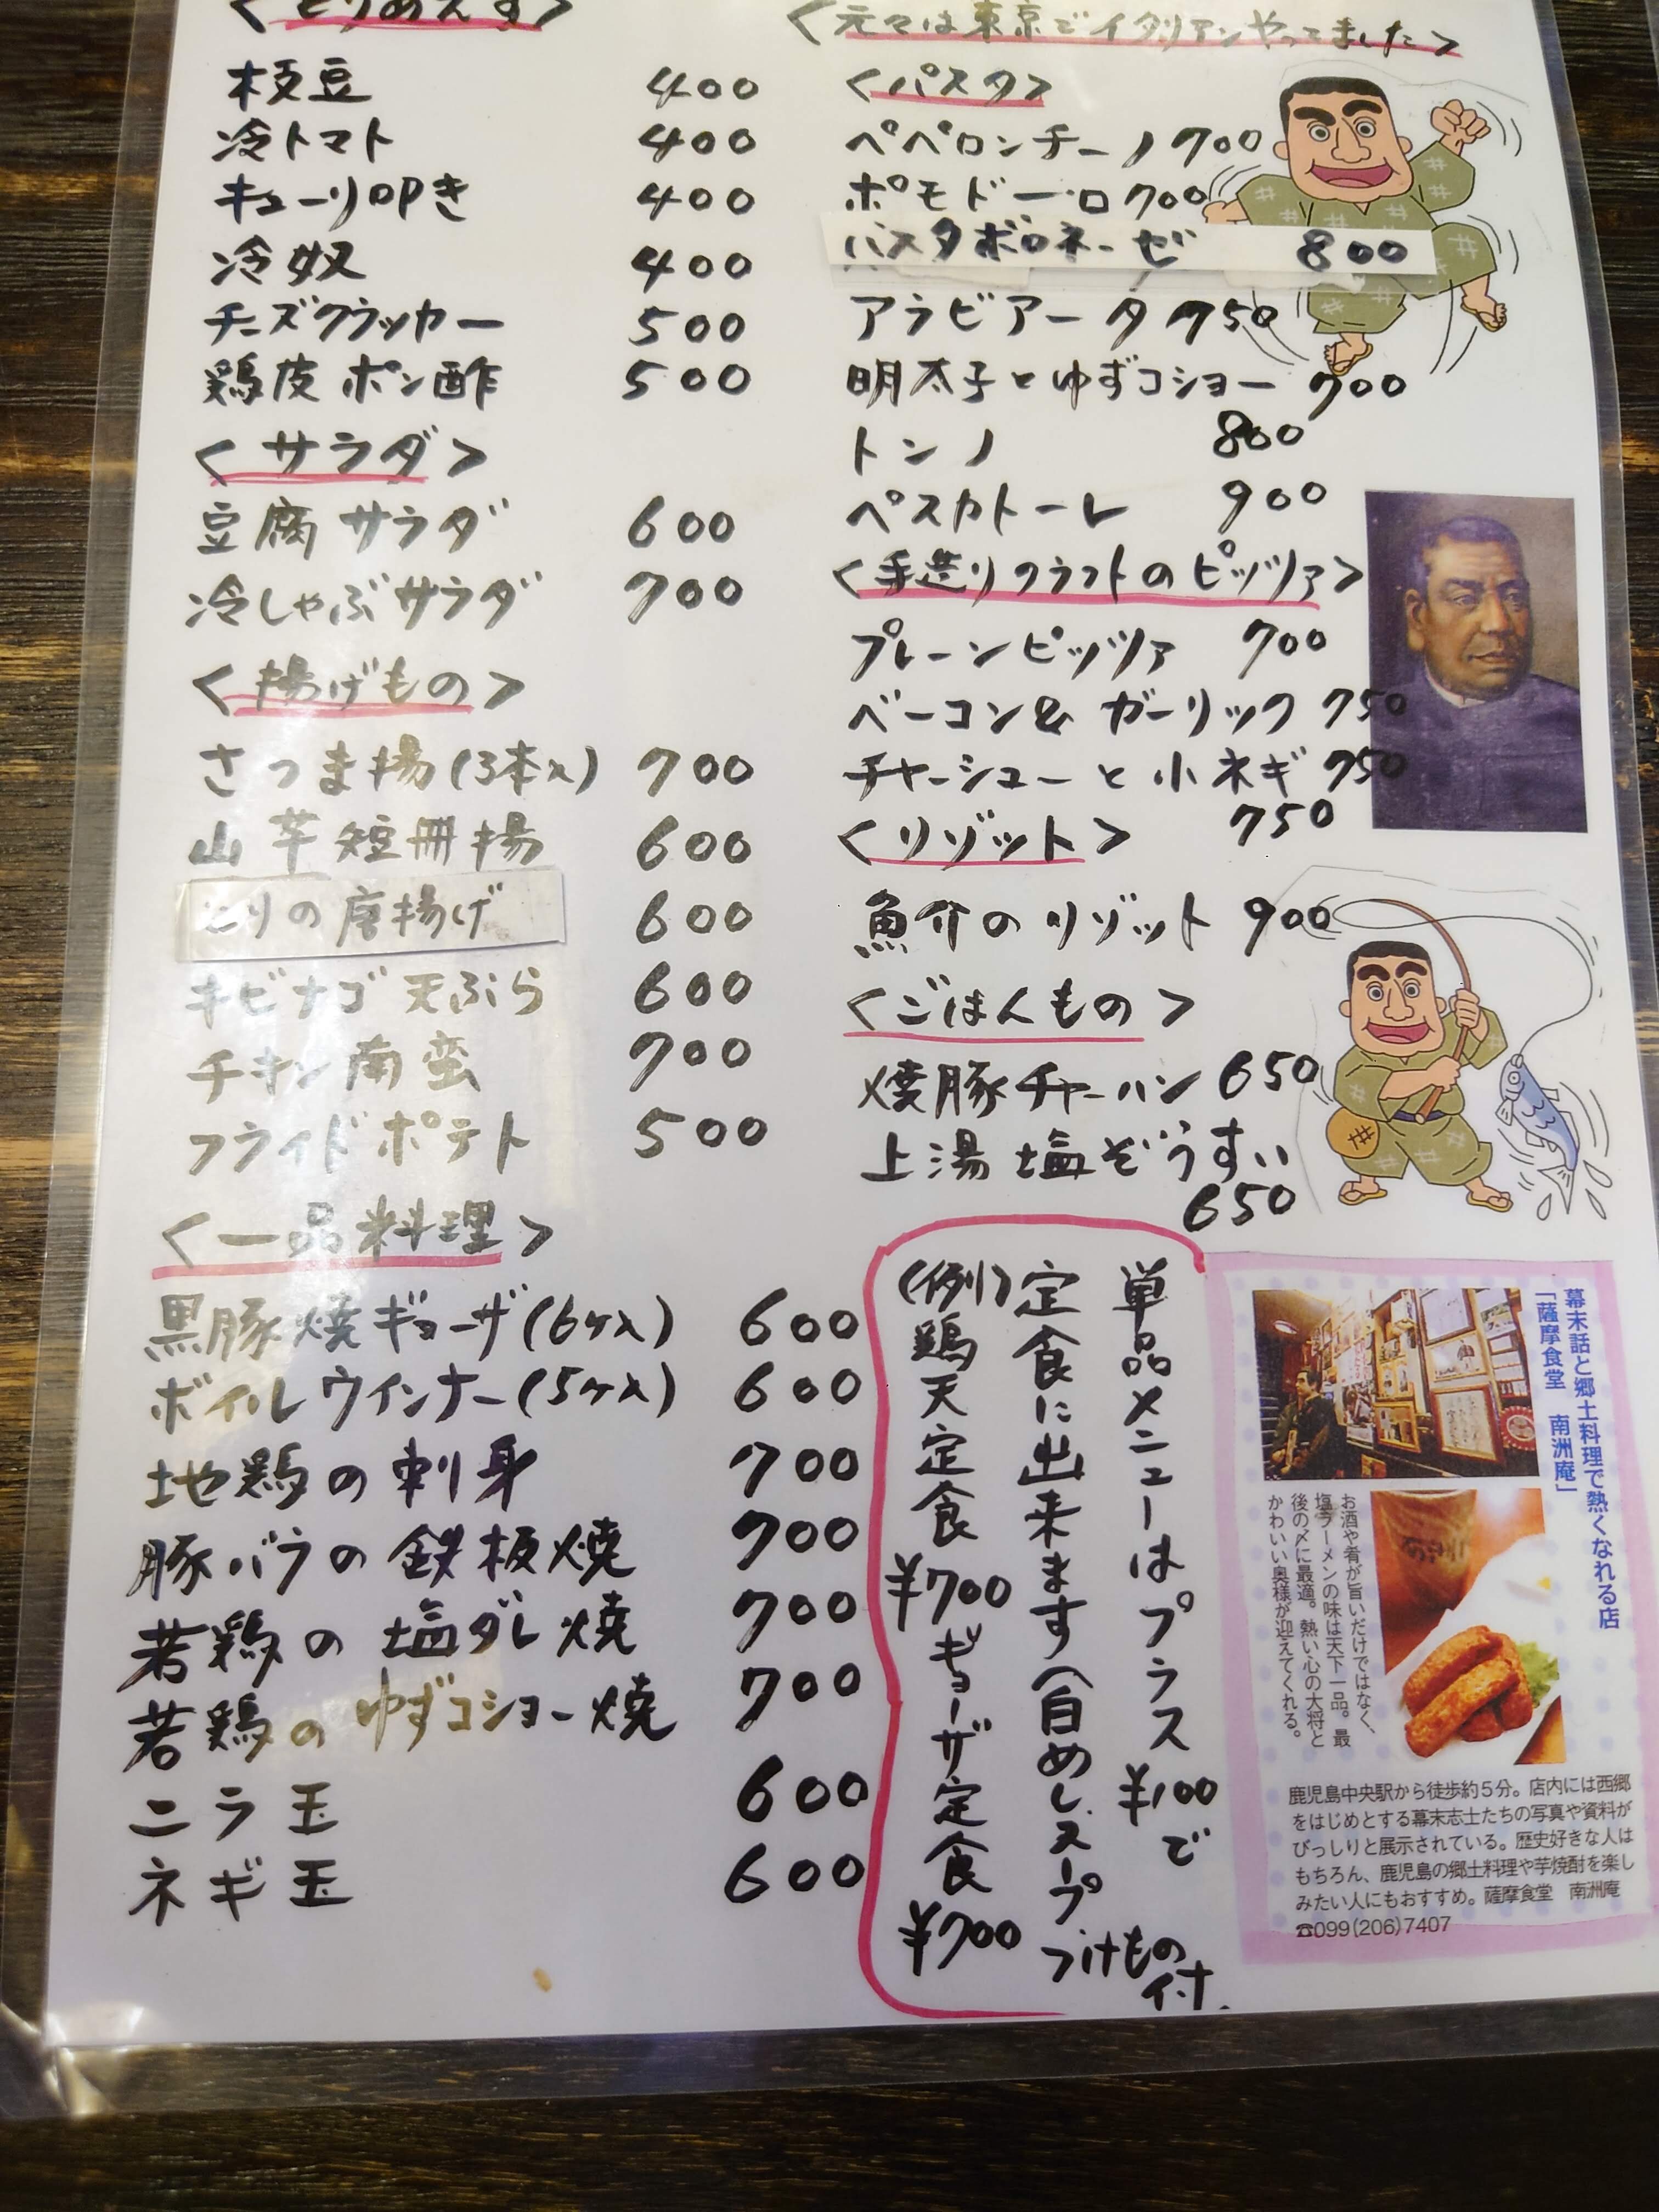 <とりあえず>
枝豆 400
冷トマト 400
キューリ叩き 400
冷奴 400
チーズクラッカー 500
鶏皮ポン酢 500
<サラダ>
豆腐サラダ 600
冷しゃぶサラダ 700
<揚げもの>
さつま揚(3本入) 700
山芋短冊揚 600
とりの唐揚げ 600
キビナゴ天ぷら 600
チキン南蛮 700
フライドポテト 500
<一品料理>
黒豚焼ギョーザ(6ヶ入) 600
ボイルウインナー(5ヶ入) 600
地鶏の刺身 700
豚バラの鉄板焼 700
若鶏の塩ダレ焼 700
若鶏のゆずコショー焼 700
ニラ玉 600
ネギ玉 600
<元々は東京でイタリアンやってました>
<パスタ>
ペペロンチーノ 700
ポモドーロ 700
パスタボロネーゼ 800
アラビアータ 750
明太子とゆずコショー 700
トンノ 800
ペスカトーレ 900
<手造りクラフトのピッツァ>
プレーンピッツァ 700
ベーコン&ガーリック 750
チャーシューと小ネギ 750
750
<リゾット>
魚介のリゾット 900
<ごはんもの>
焼豚チャーハン 650
上湯塩ぞうすい
650
単品メニューはプラス¥100で
定食に出来ます(白めし.スープ.つけもの付.
(例)鶏天定食¥700 ギョーザ定食¥700
幕末話と郷土料理で熱くなれる店
「薩摩食堂 南洲庵」
お酒や肴が旨いだけではなく、
塩ラーメンの味は天下一品。最
後の〆に最適。熱い心の大将と
かわいい奥様が迎えてくれる。
鹿児島中央駅から徒歩約5分。店内には西郷
をはじめとする幕末志士たちの写真や資料が
びっしりと展示されている。歴史好きな人は
もちろん、鹿児島の郷土料理や芋焼酎を楽し
みたい人にもおすすめ。薩摩食堂 南洲庵
☎099(206)7407